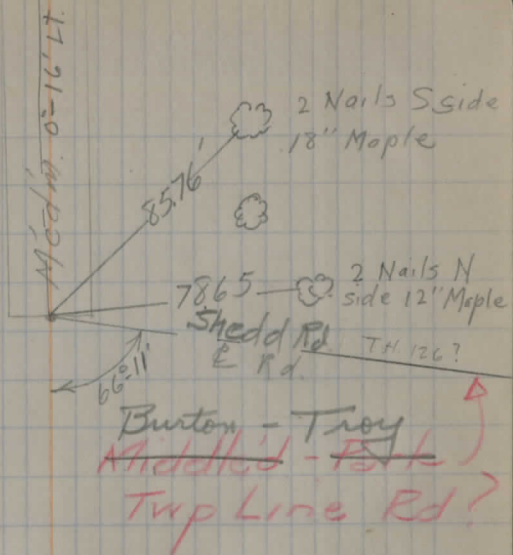 2 Nails S side
18" Maple
85.76'
2 Nails N
side 12" Maple
78.65
Shedd Rd
℄ Rd.
T.H. 126?
66°-11'
Burton - Troy
Middlefd - Park
Twp Line Rd?